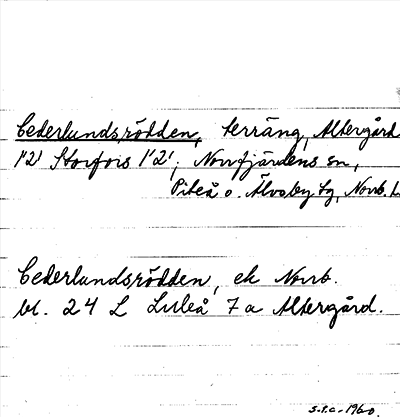 Cederlundsrödden, terräng, Altergård
1'2' Storfors 1'2', Norrfjärdens sn,
Piteå o. Älvsby tg, Norrb. l.
Cederlundsrödden, ek Norrb.
bl. 24 L Luleå 7a Altergård.
s.t.c. 1960.